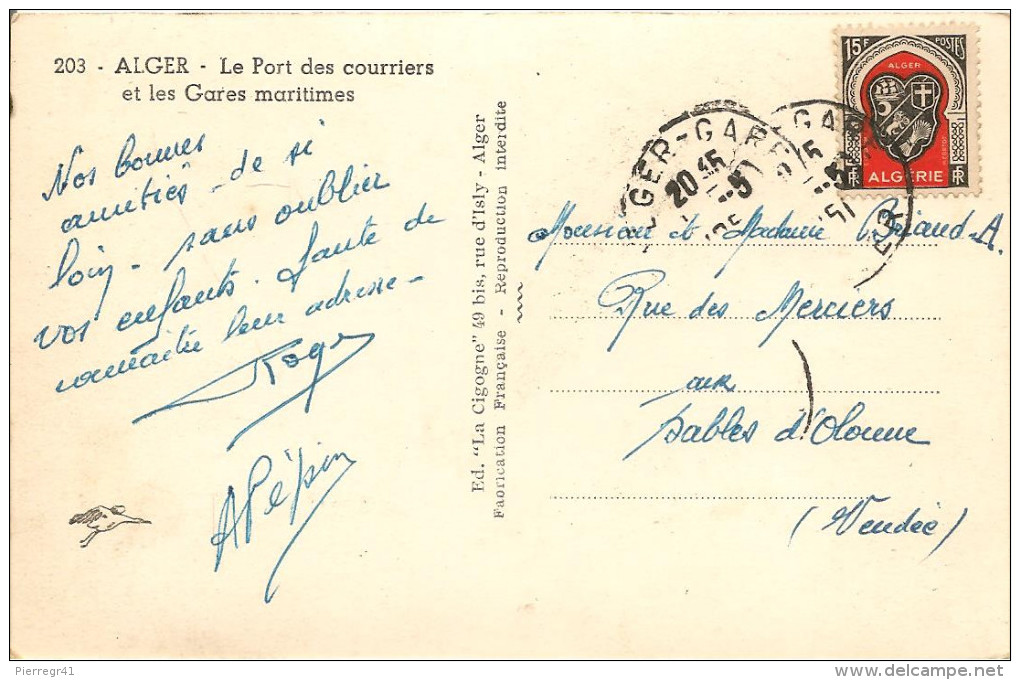 203 - ALGER - Le Port des courriers
et les Gares maritimes
Nos bonnes
amitiés - de si
loin - sans oublier
vos enfants. faute de
connaître leur adresse -
Roger
A Pépin
Ed. "La Cigogne" 49 bis, rue d'Isly - Alger
Fabrication Française - Reproduction interdite
15F POSTES
ALGER
ALGÉRIE
RF RF
ALGER-GARE
20 45
Monsieur et Madame Briand-A.
Rue des Merciers
aux
Sables d'Olonne
(Vendée)
Pierregr41
www.delcampe.net